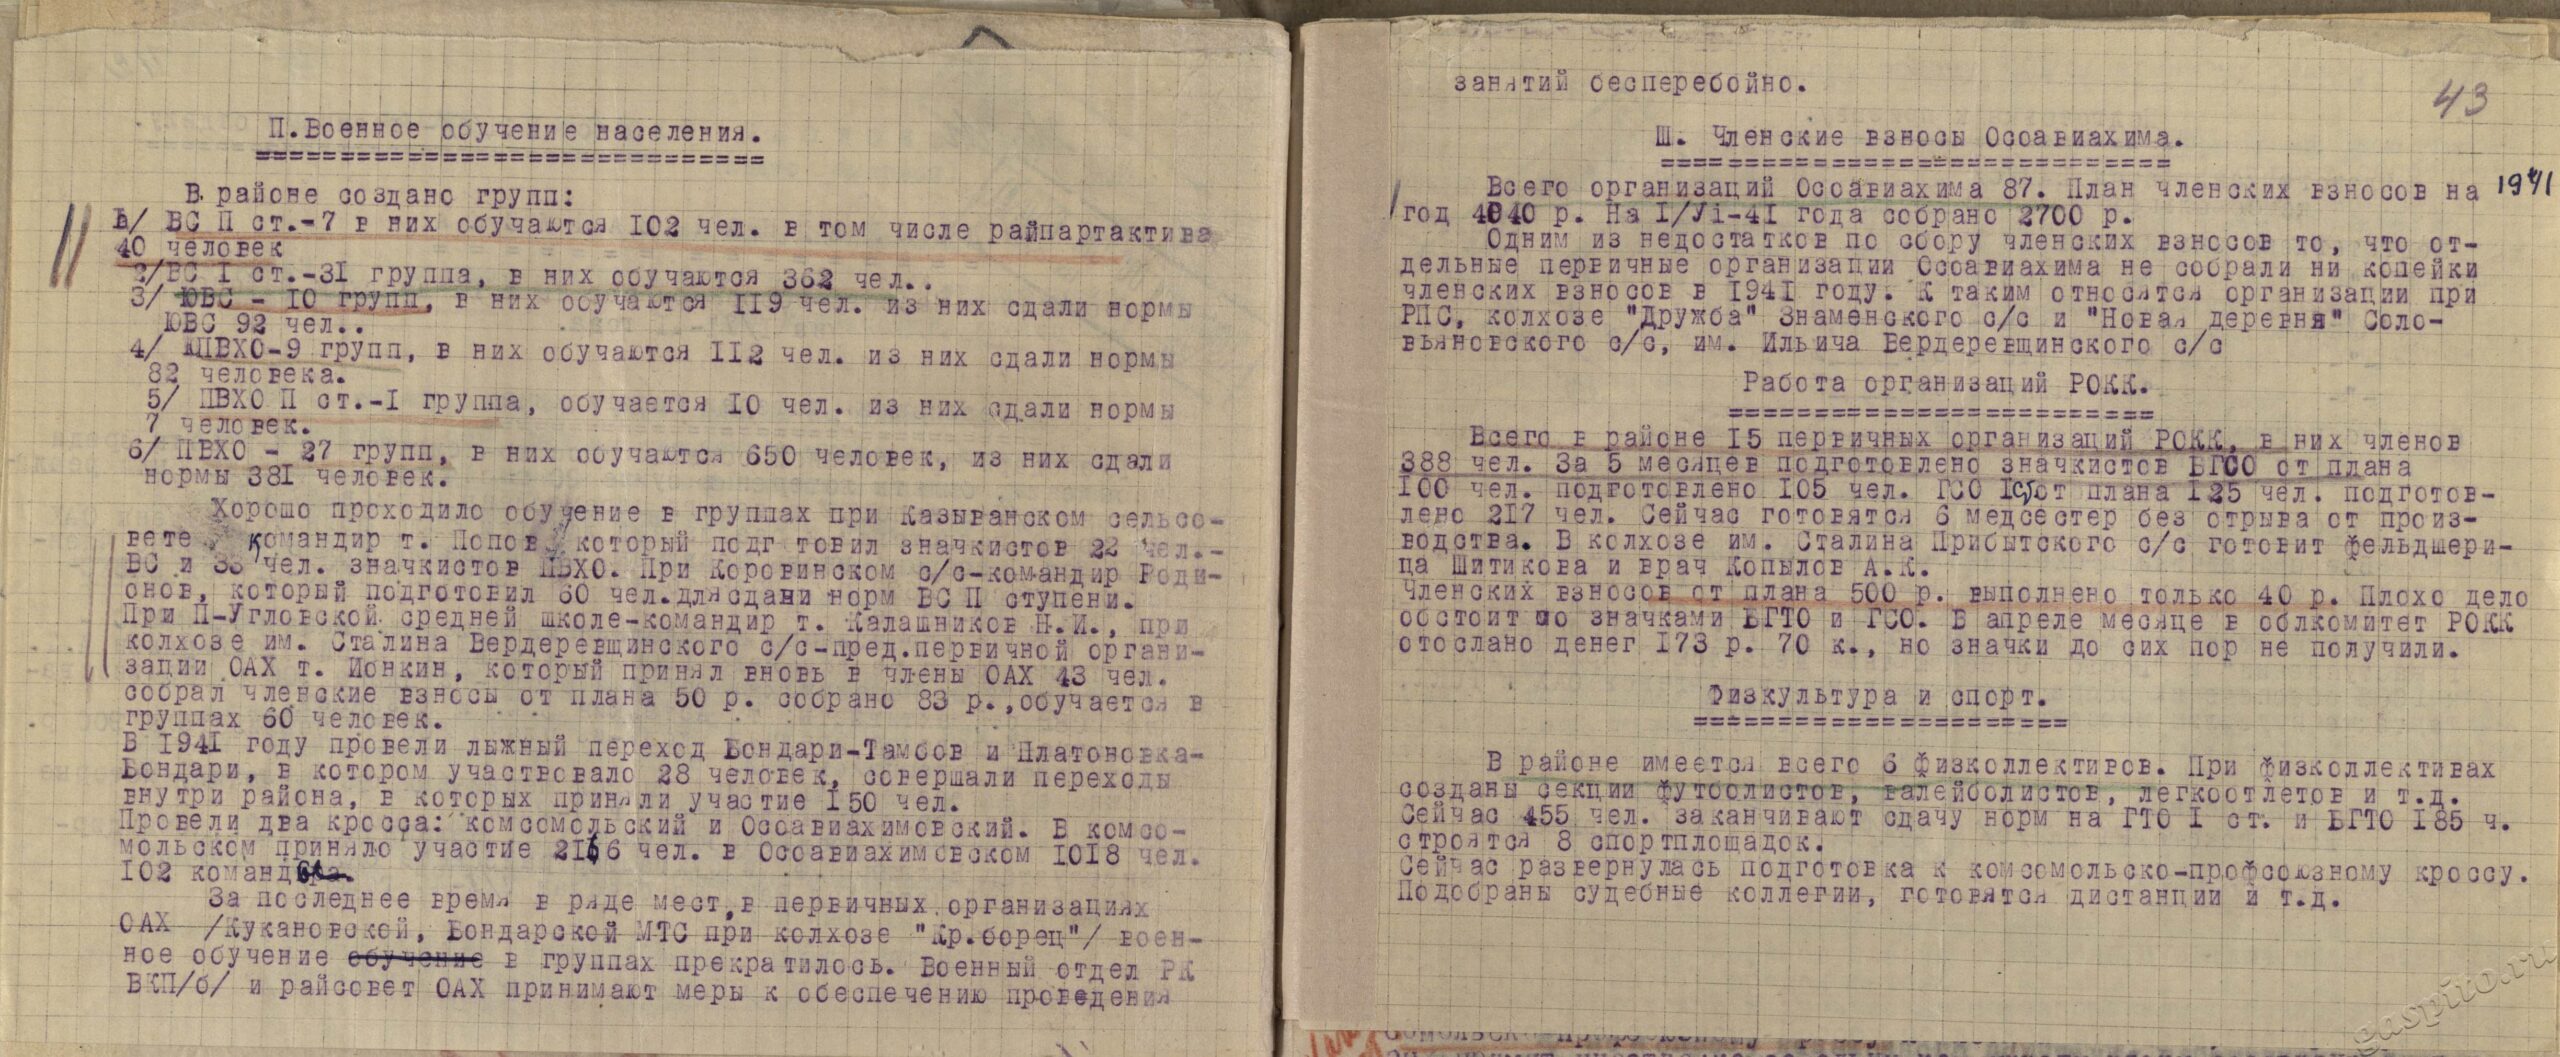 П. Военное обучение населения.
==============================
В районе создано групп:
1/ ВС П ст.-7 в них обучаются 102 чел. в том числе райпартактива
40 человек
2/ВС I ст.-31 группа, в них обучаются 362 чел..
3/ ЮВС - 10 групп, в них обучаются 119 чел. из них сдали нормы
ЮВС 92 чел..
4/ ЮПВХО-9 групп, в них обучаются 112 чел. из них сдали нормы
82 человека.
5/ ПВХО П ст.-I группа, обучается 10 чел. из них сдали нормы
7 человек.
6/ ПВХО - 27 групп, в них обучаются 650 человек, из них сдали
нормы 381 человек.
Хорошо проходило обучение в группах при Казыванском сельсо-
вете командир т. Попов который подг товил значкистов 22 чел.-
ВС и 33 чел. значкистов ПВХО. При Коровинском с/с-командир Роди-
онов, который подготовил 60 чел.для сдачи норм ВС П ступени.
При П-Угловской средней школе-командир т. Калашников Н.И., при
колхозе им. Сталина Вердеревщинского с/с-пред.первичной органи-
зации ОАХ т. Ионкин, который принял вновь в члены ОАХ 43 чел.
собрал членские взносы от плана 50 р. собрано 83 р.,обучается в
группах 60 человек.
В 1941 году провели лыжный переход Бондари-Тамбов и Платоновка-
Бондари, в котором участвовало 28 человек, совершали переходы
внутри района, в которых приняли участие 150 чел.
Провели два кросса: комсомольский и Осоавиахимовский. В комсо-
мольском приняло участие 2166 чел. в Осоавиахимовском 1018 чел.
102 команды.
За последнее время в ряде мест,в первичных организациях
ОАХ /Кукановской, Бондарской МТС при колхозе "Кр.борец"/ воен-
ное обучение обучение в группах прекратилось. Военный отдел РК
ВКП/б/ и райсовет ОАХ принимают меры к обеспечению проведения
43
занятий бесперебойно.
Ш. Членские взносы Осоавиахима.
==============================
Всего организаций Осоавиахима 87. План членских взносов на 1941
год 4040 р. На I/Уi-41 года собрано 2700 р.
Одним из недостатков по сбору членских взносов то, что от-
дельные первичные организации Осоавиахима не собрали ни копейки
членских взносов в 1941 году. К таким относятся организации при
РПС, колхозе "Дружба" Знаменского с/с и "Новая деревня" Соло-
вьяновского с/с, им. Ильича Вердеревщинского с/с
Работа организаций РОКК.
=========================
Всего в районе 15 первичных организаций РОКК, в них членов
388 чел. За 5 месяцев подготовлено значкистов БГСО от плана
100 чел. подготовлено 105 чел. ГСО 1 ст от плана 125 чел. подготов-
лено 217 чел. Сейчас готовятся 6 медсестер без отрыва от произ-
водства. В колхозе им. Сталина Прибытского с/с готовит фельдшери-
ца Шитикова и врач Копылов А.К.
Членских взносов от плана 500 р. выполнено только 40 р. Плохо дело
обстоит со значками БГТО и ГСО. В апреле месяце в облкомитет РОКК
отослано денег 173 р. 70 к., но значки до сих пор не получили.
Физкультура и спорт.
======================
В районе имеется всего 6 физколлективов. При физколлективах
созданы секции футболистов, валейболистов, легкоотлетов и т.д.
Сейчас 455 чел. заканчивают сдачу норм на ГТО I ст. и БГТО 185 ч.
строятся 8 спортплощадок.
Сейчас развернулась подготовка к комсомольско-профсоюзному кроссу.
Подобраны судебные коллегии, готовятся дистанции и т.д.
gaspito.ru